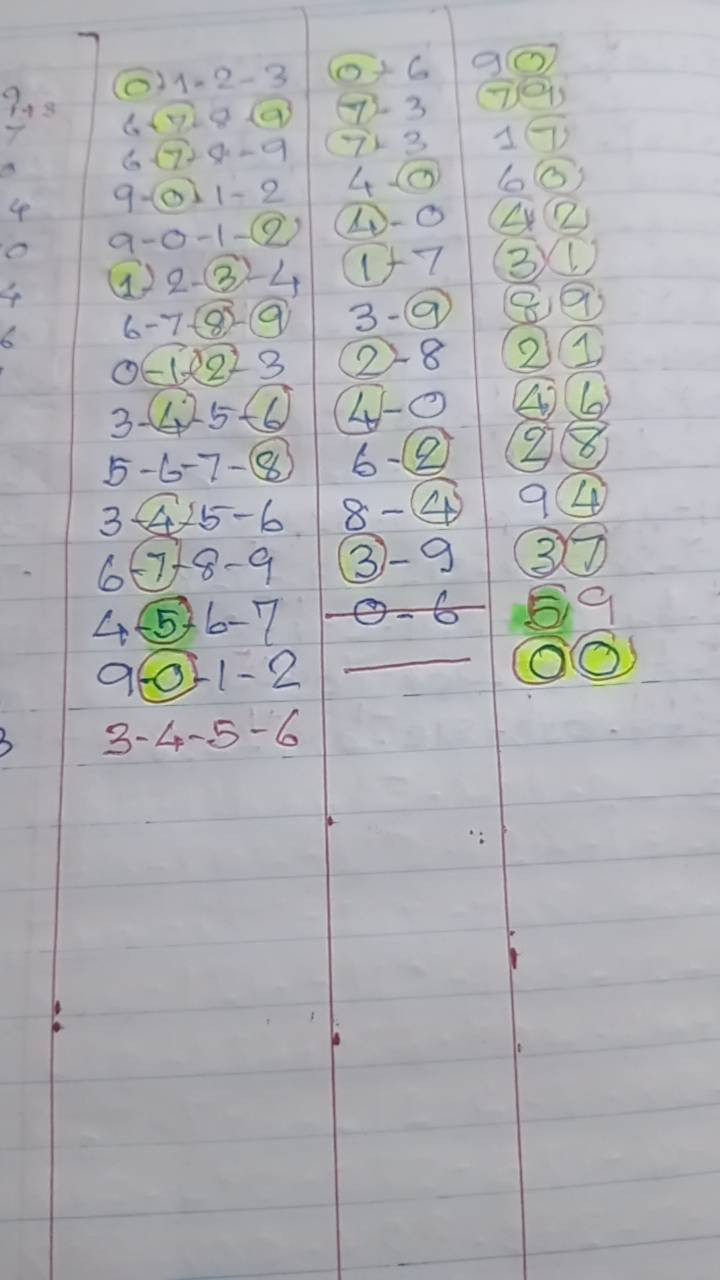 0-1-2-3 0-6 90
6-7-8-9 7-3 79
6-7-8-9 7-3 17
9-0-1-2 4-0 60
9-0-1-2 4-0 42
1-2-3-4 1-7 31
6-7-8-9 3-9 89
0-1-2-3 2-8 21
3-4-5-6 4-0 46
5-6-7-8 6-2 28
3-4-5-6 8-4 94
6-7-8-9 3-9 37
4-5-6-7 0-6 59
9-0-1-2 00
3-4-5-6